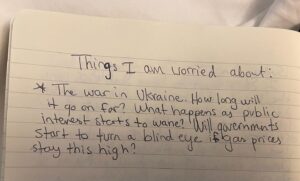 Things I am worried about:
* The war in Ukraine. How long will
it go on for? What happens as public
interest starts to wane? Will governments
start to turn a blind eye if gas prices
stay this high?